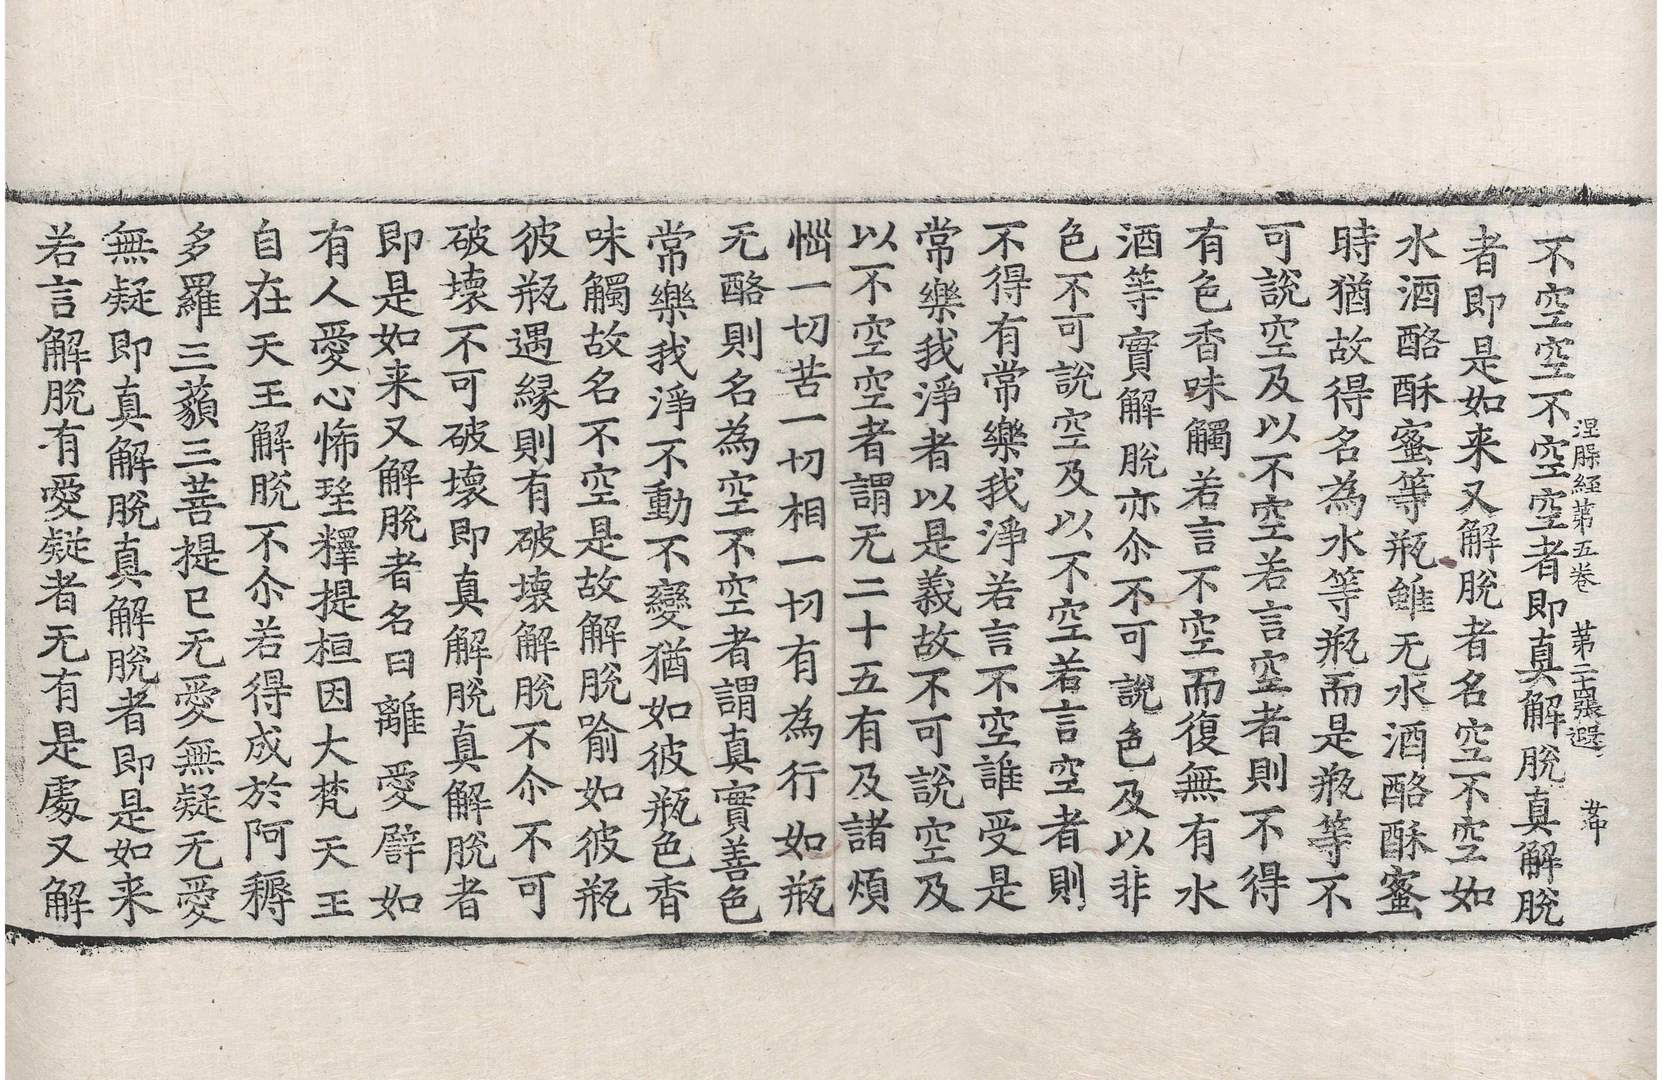 涅槃經第五卷　第二十張　遐　毋
不空空不空空者即真解脫真解脫
者即是如来又解脫者名空不空如
水酒酪酥蜜等瓶雖无水酒酪酥蜜
時猶故得名為水等瓶而是瓶等不
可說空及以不空若言空者則不得
有色香味觸若言不空而復無有水
酒等實解脫亦尒不可說色及以非
色不可說空及以不空若言空者則
不得有常樂我淨若言不空誰受是
常樂我淨者以是義故不可說空及
以不空空者謂无二十五有及諸煩
惱一切苦一切相一切有為行如瓶
无酪則名為空不空者謂真實善色
常樂我淨不動不變猶如彼瓶色香
味觸故名不空是故解脫喻如彼瓶
彼瓶遇緣則有破壞解脫不尒不可
破壞不可破壞即真解脫真解脫者
即是如来又解脫者名曰離愛譬如
有人愛心悕望釋提桓因大梵天王
自在天王解脫不尒若得成於阿耨
多羅三藐三菩提已无愛無疑无愛
無疑即真解脫真解脫者即是如来
若言解脫有愛疑者无有是處又解